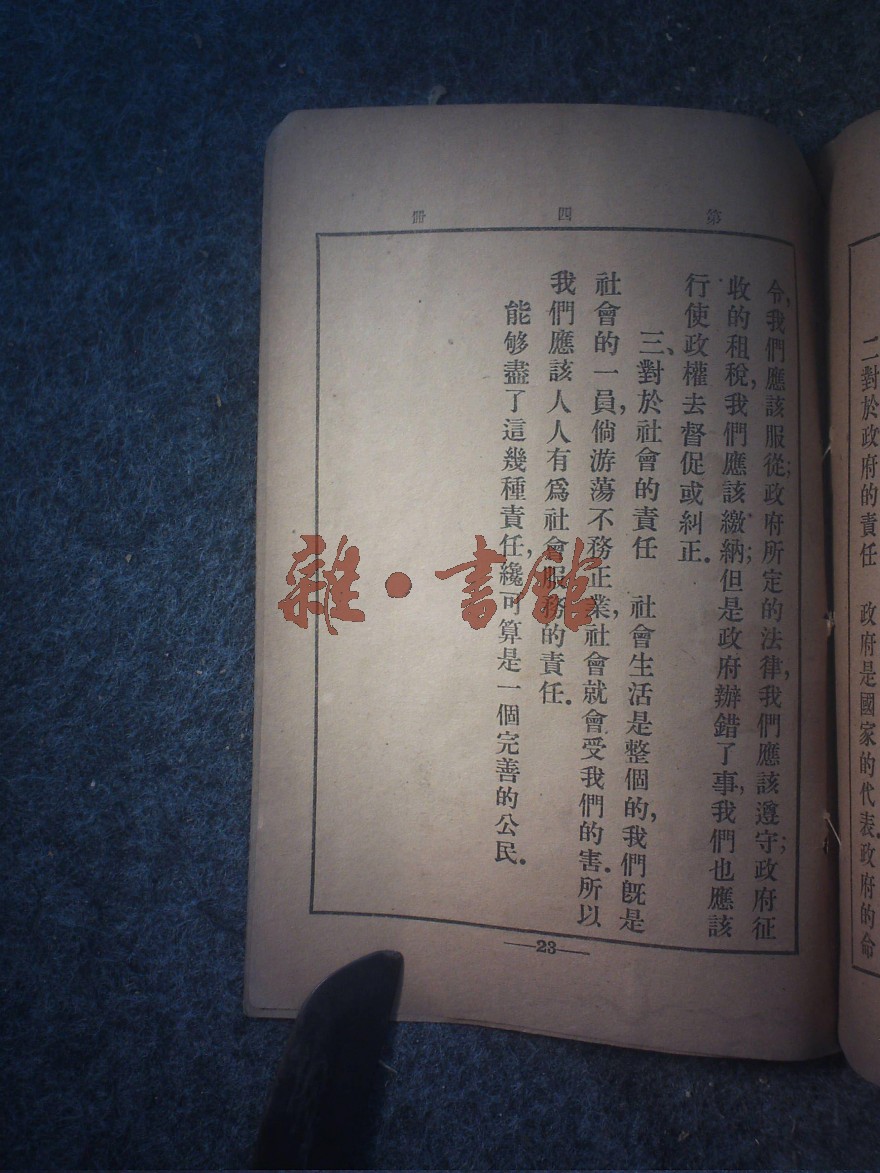 二、對於政府的責任　政府是國家的代表．政府的命
第四冊
令，我們應該服從；政府所定的法律，我們應該遵守；政府征
收的租稅，我們應該繳納；但是政府辦錯了事，我們也應該
行使政權去督促或糾正．
三、對於社會的責任　社會生活是整個的，我們旣是
社會的一員，倘游蕩不務正業，社會就會受我們的害．所以
我們應該人人有爲社會服務的責任．
能够盡了這幾種責任，纔可算是一個完善的公民．
—23—
雜·書館